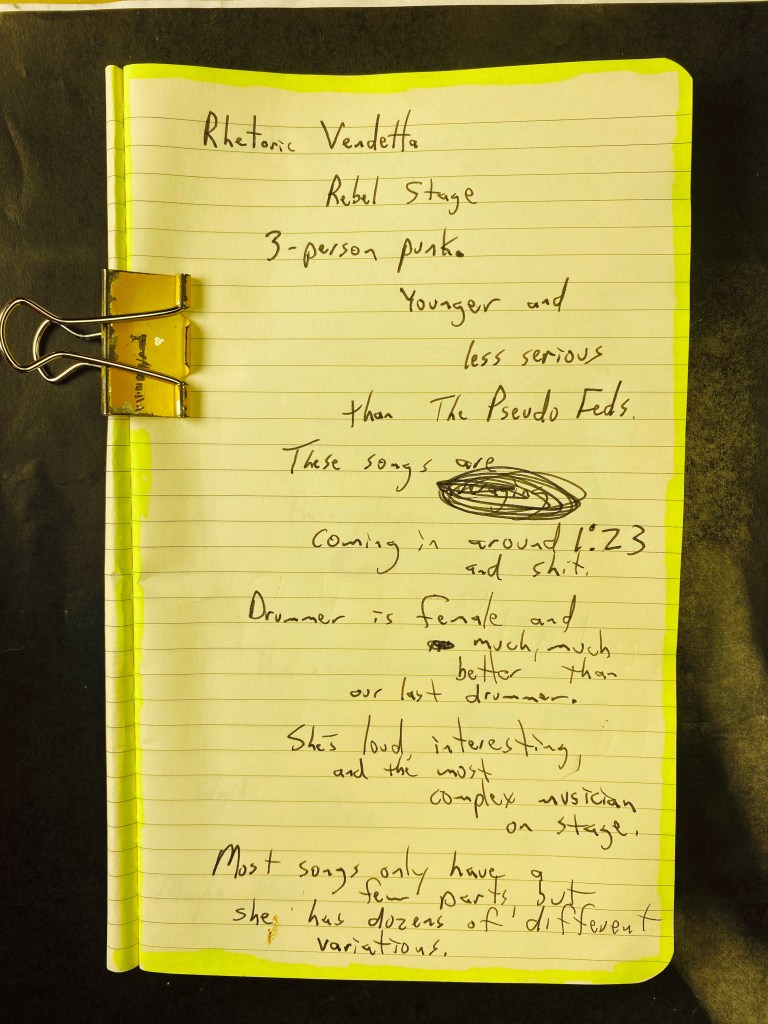 Rhetoric Vendetta
Rebel Stage
3-person punk.
Younger and
less serious
than The Pseudo Feds.
These songs are
coming in around 1:23
and shit.
Drummer is female and
much, much
better than
our last drummer.
She's loud, interesting,
and the most
complex musician
on stage.
Most songs only have a
few parts, but
she has dozens of different
variations.